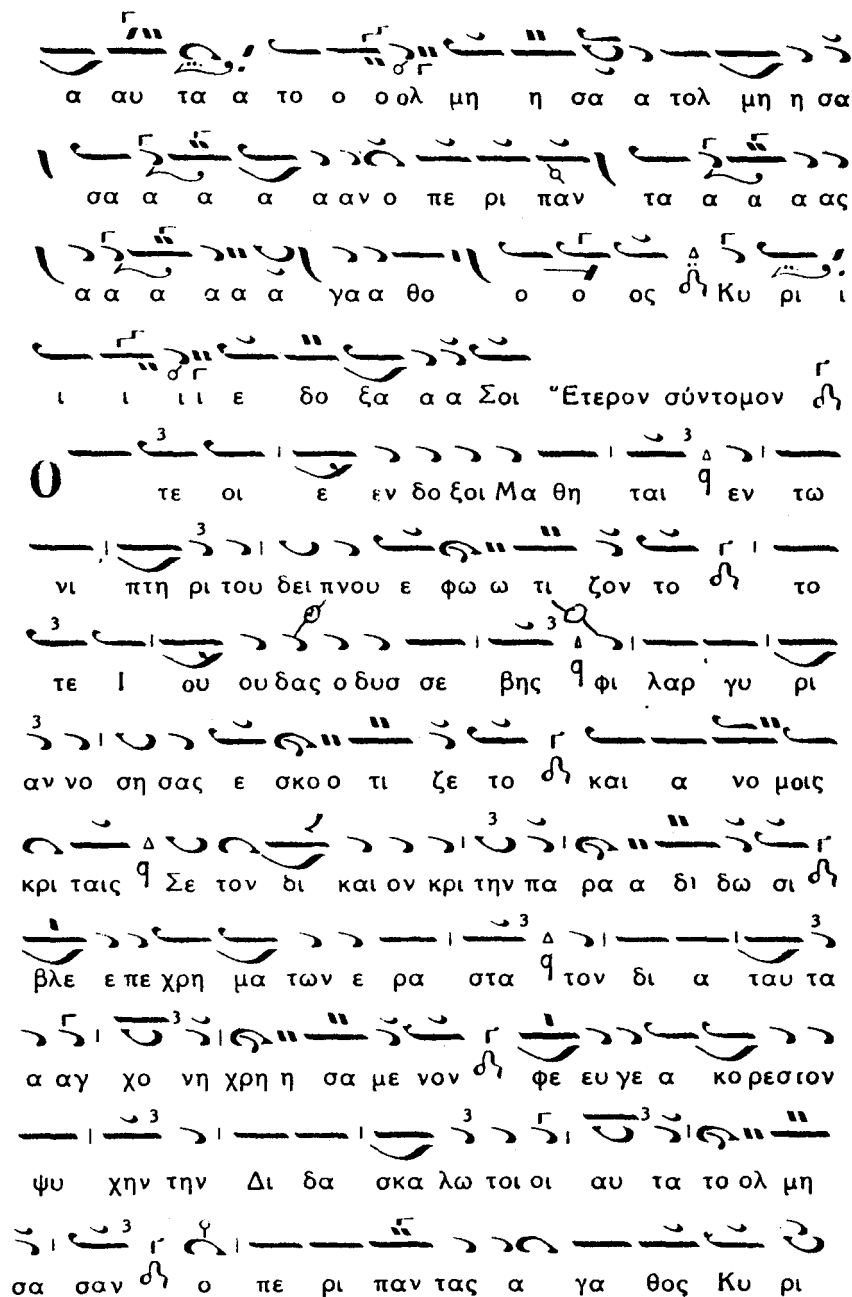 α αυ τα α το ο ο ολ μη η σα α τολ μη η σα
σα α α α α αν ο πε ρι παν τα α α α ας
α α α α α α γα α θο ο ο ος Κυ ρι ι
ι ι ι ι ε δο ξα α α Σοι Ἕτερον σύντομον
Ο τε οι ε εν δο ξοι Μα θη ται εν τω
νι πτη ρι του δει πνου ε φω ω τι ζον το το
τε Ι ου ου δας ο δυσ σε βης φι λαρ γυ ρι
αν νο ση σας ε σκο ο τι ζε το και α νο μοις
κρι ταις Σε τον δι και ον κρι την πα ρα α δι δω σι
βλε ε πε χρη μα των ε ρα στα τον δι α ταυ τα
α αγ χο νη χρη η σα με νον φε ευ γε α κο ρεστον
ψυ χην την Δι δα σκα λω τοι οι αυ τα το ολ μη
σα σαν ο πε ρι παν τας α γα θος Κυ ρι